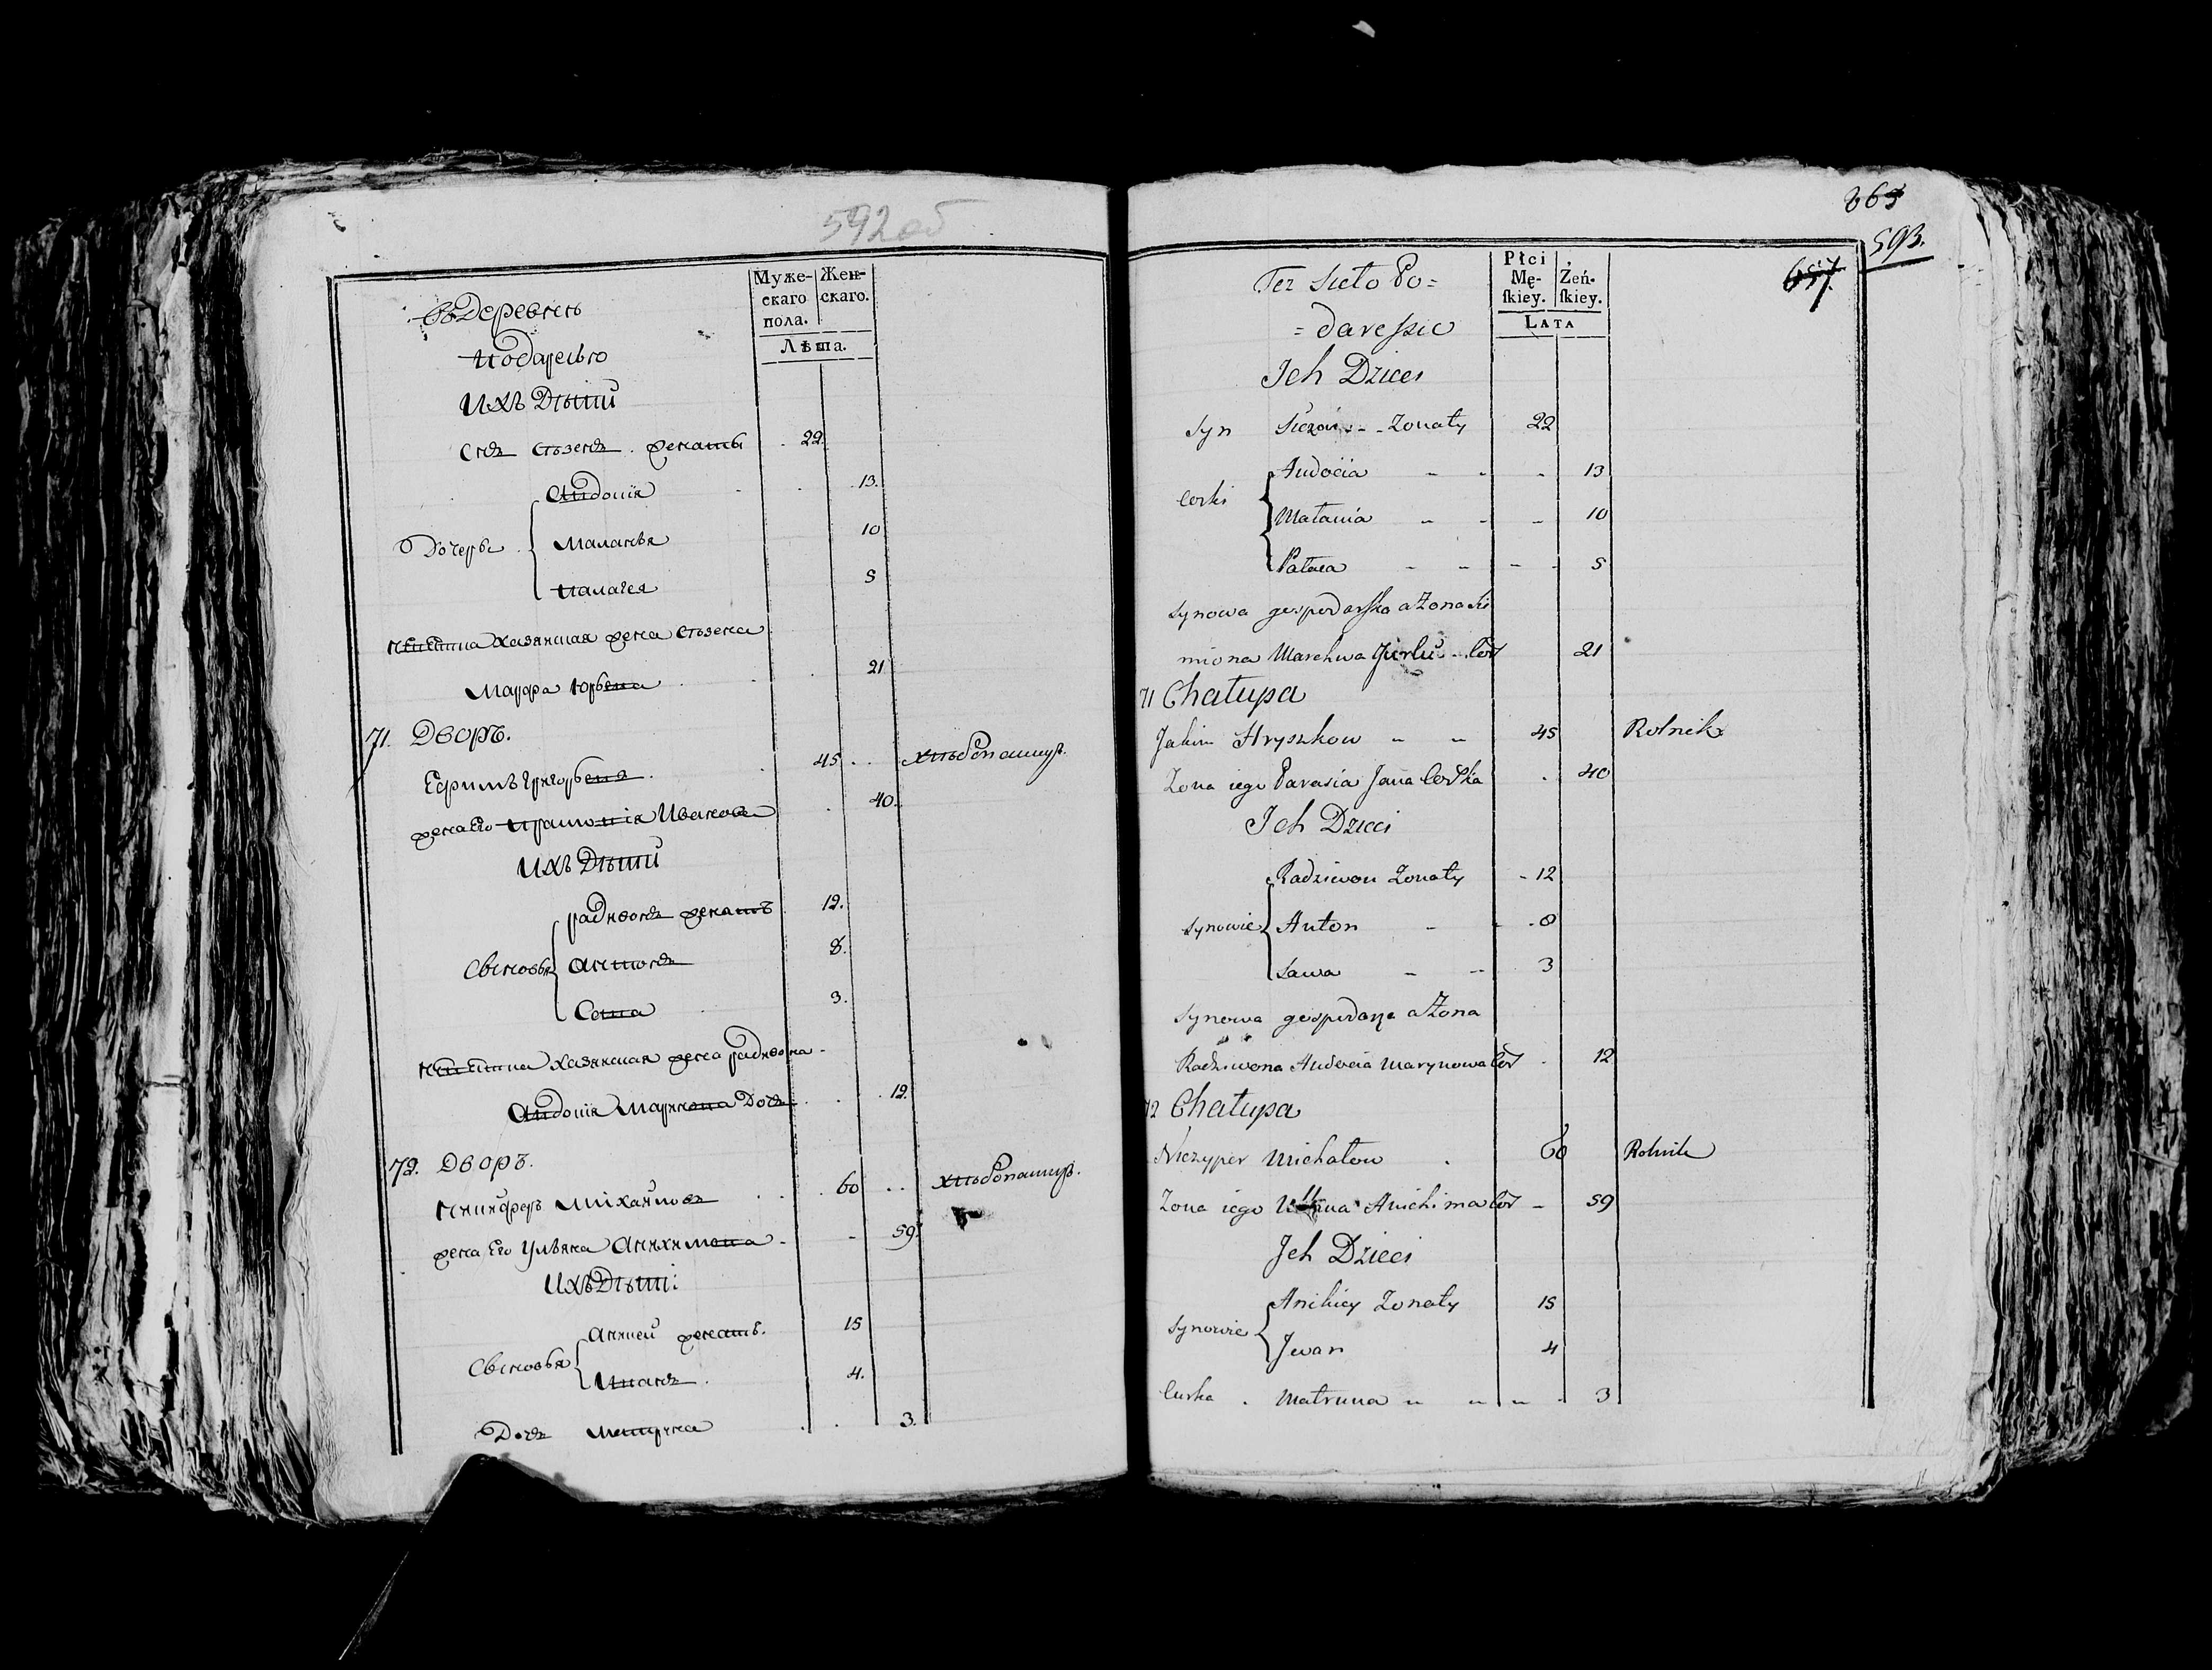 592 об
Муже-
скаго
пола.
Жен-
скаго.
Лѣта.
Въ Деревнѣ
Подаресье
ИХЪ Дѣти
Снъ Сѣзенъ женаты 22.
Авдоція 13.
Дочерье Маланья 10
Палагея 5
Невѣстка Хазянская жена Сѣзена
Марфа Юрьева 21
71. Дворъ.
Ефимъ Григорьевъ 45 Хлѣбопашцъ.
жена Его Прасковія Иванова 40.
ИХЪ Дѣти
радивонъ женатъ 12.
Сыновья Антонъ 8.
Сава 3.
Невѣстка Хазянская жена радивона
Авдоція Маринова Дочь 12.
72. Дворъ.
Ничифоръ Михайловъ 60 Хлѣбопашцъ.
жена Его Ульяна Анихимова 59
ИХЪ Дѣти:
Аникей женатъ. 15
Сыновья Иванъ 4.
Дочь Матруна 3.
863
593.
657
Płci
Mę-
skiey.
Żeń-
skiey.
LATA
Też Sieło Po=
=daressie
Ich Dzieci
Syn Siezon Zonaty 22
Audocia 13
Corki Małania 10
Pałaea 5
Synowa gospodarska a Zona Si
miona Marchwa Jurku Cor 21
71 Chałupa
Jakim Hryszkow 45 Rolnik
Zona iego Parasia Jana Corka 40
Ich Dzieci
Radziwon Zonaty 12
Synowie Anton 8
Sawa 3
Synowa gospodarza a Zona
Radziwona Audocia Marynowa Cor 12
72 Chałupa
Niczyper Michałow 60 Rolnik
Zona iego Ullana Anichima Cor 59
Ich Dzieci
Anikiey Zonaty 15
Synowie Iwan 4
Curka Matruna 3